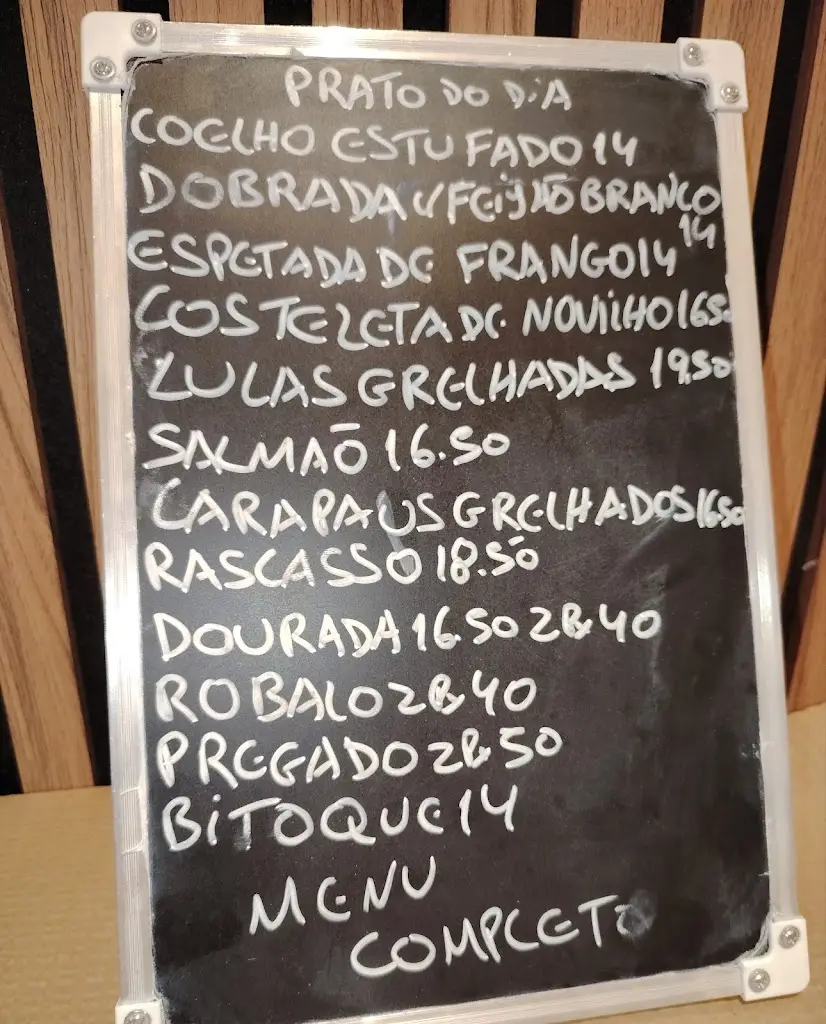 PRATO DO DiA
COELHO ESTUFADO 14
DOBRADA C/ FEijÃO BRANCO
14
ESPETADA DE FRANGO 14
COSTELETA DE NOViLHO 16.50
LULAS GRELHADAS 19.50
SALMAÕ 16.50
CARAPAUS GRELHADOS 16.50
RASCASSO 18.50
DOURADA 16.50 2P 40
ROBALO 2P 40
PREGADO 2P 50
BiTOQUE 14
MENU
COMPLETO